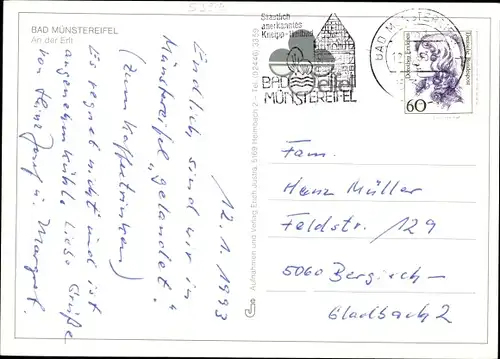 BAD MÜNSTEREIFEL
An der Erft
12.1.1993
Endlich sind wir in
Münstereifel „gelandet"
(zum Kaffeetrinken)
Es regnet nicht und ist
angenehm kühl. Liebe Grüße
von Heinz Josef u. Margret.
Aufnahmen und Verlag Erich Justra, 5169 Heimbach 2 – Tel. (02446) 33 59
Staatlich
anerkanntes
Kneipp-Heilbad
BAD
MÜNSTEREIFEL
Eifel
BAD MÜNSTEREIFEL
Deutsche Bundespost
60
Fam.
Heinz Müller
Feldstr. 129
5060 Bergisch-
Gladbach 2